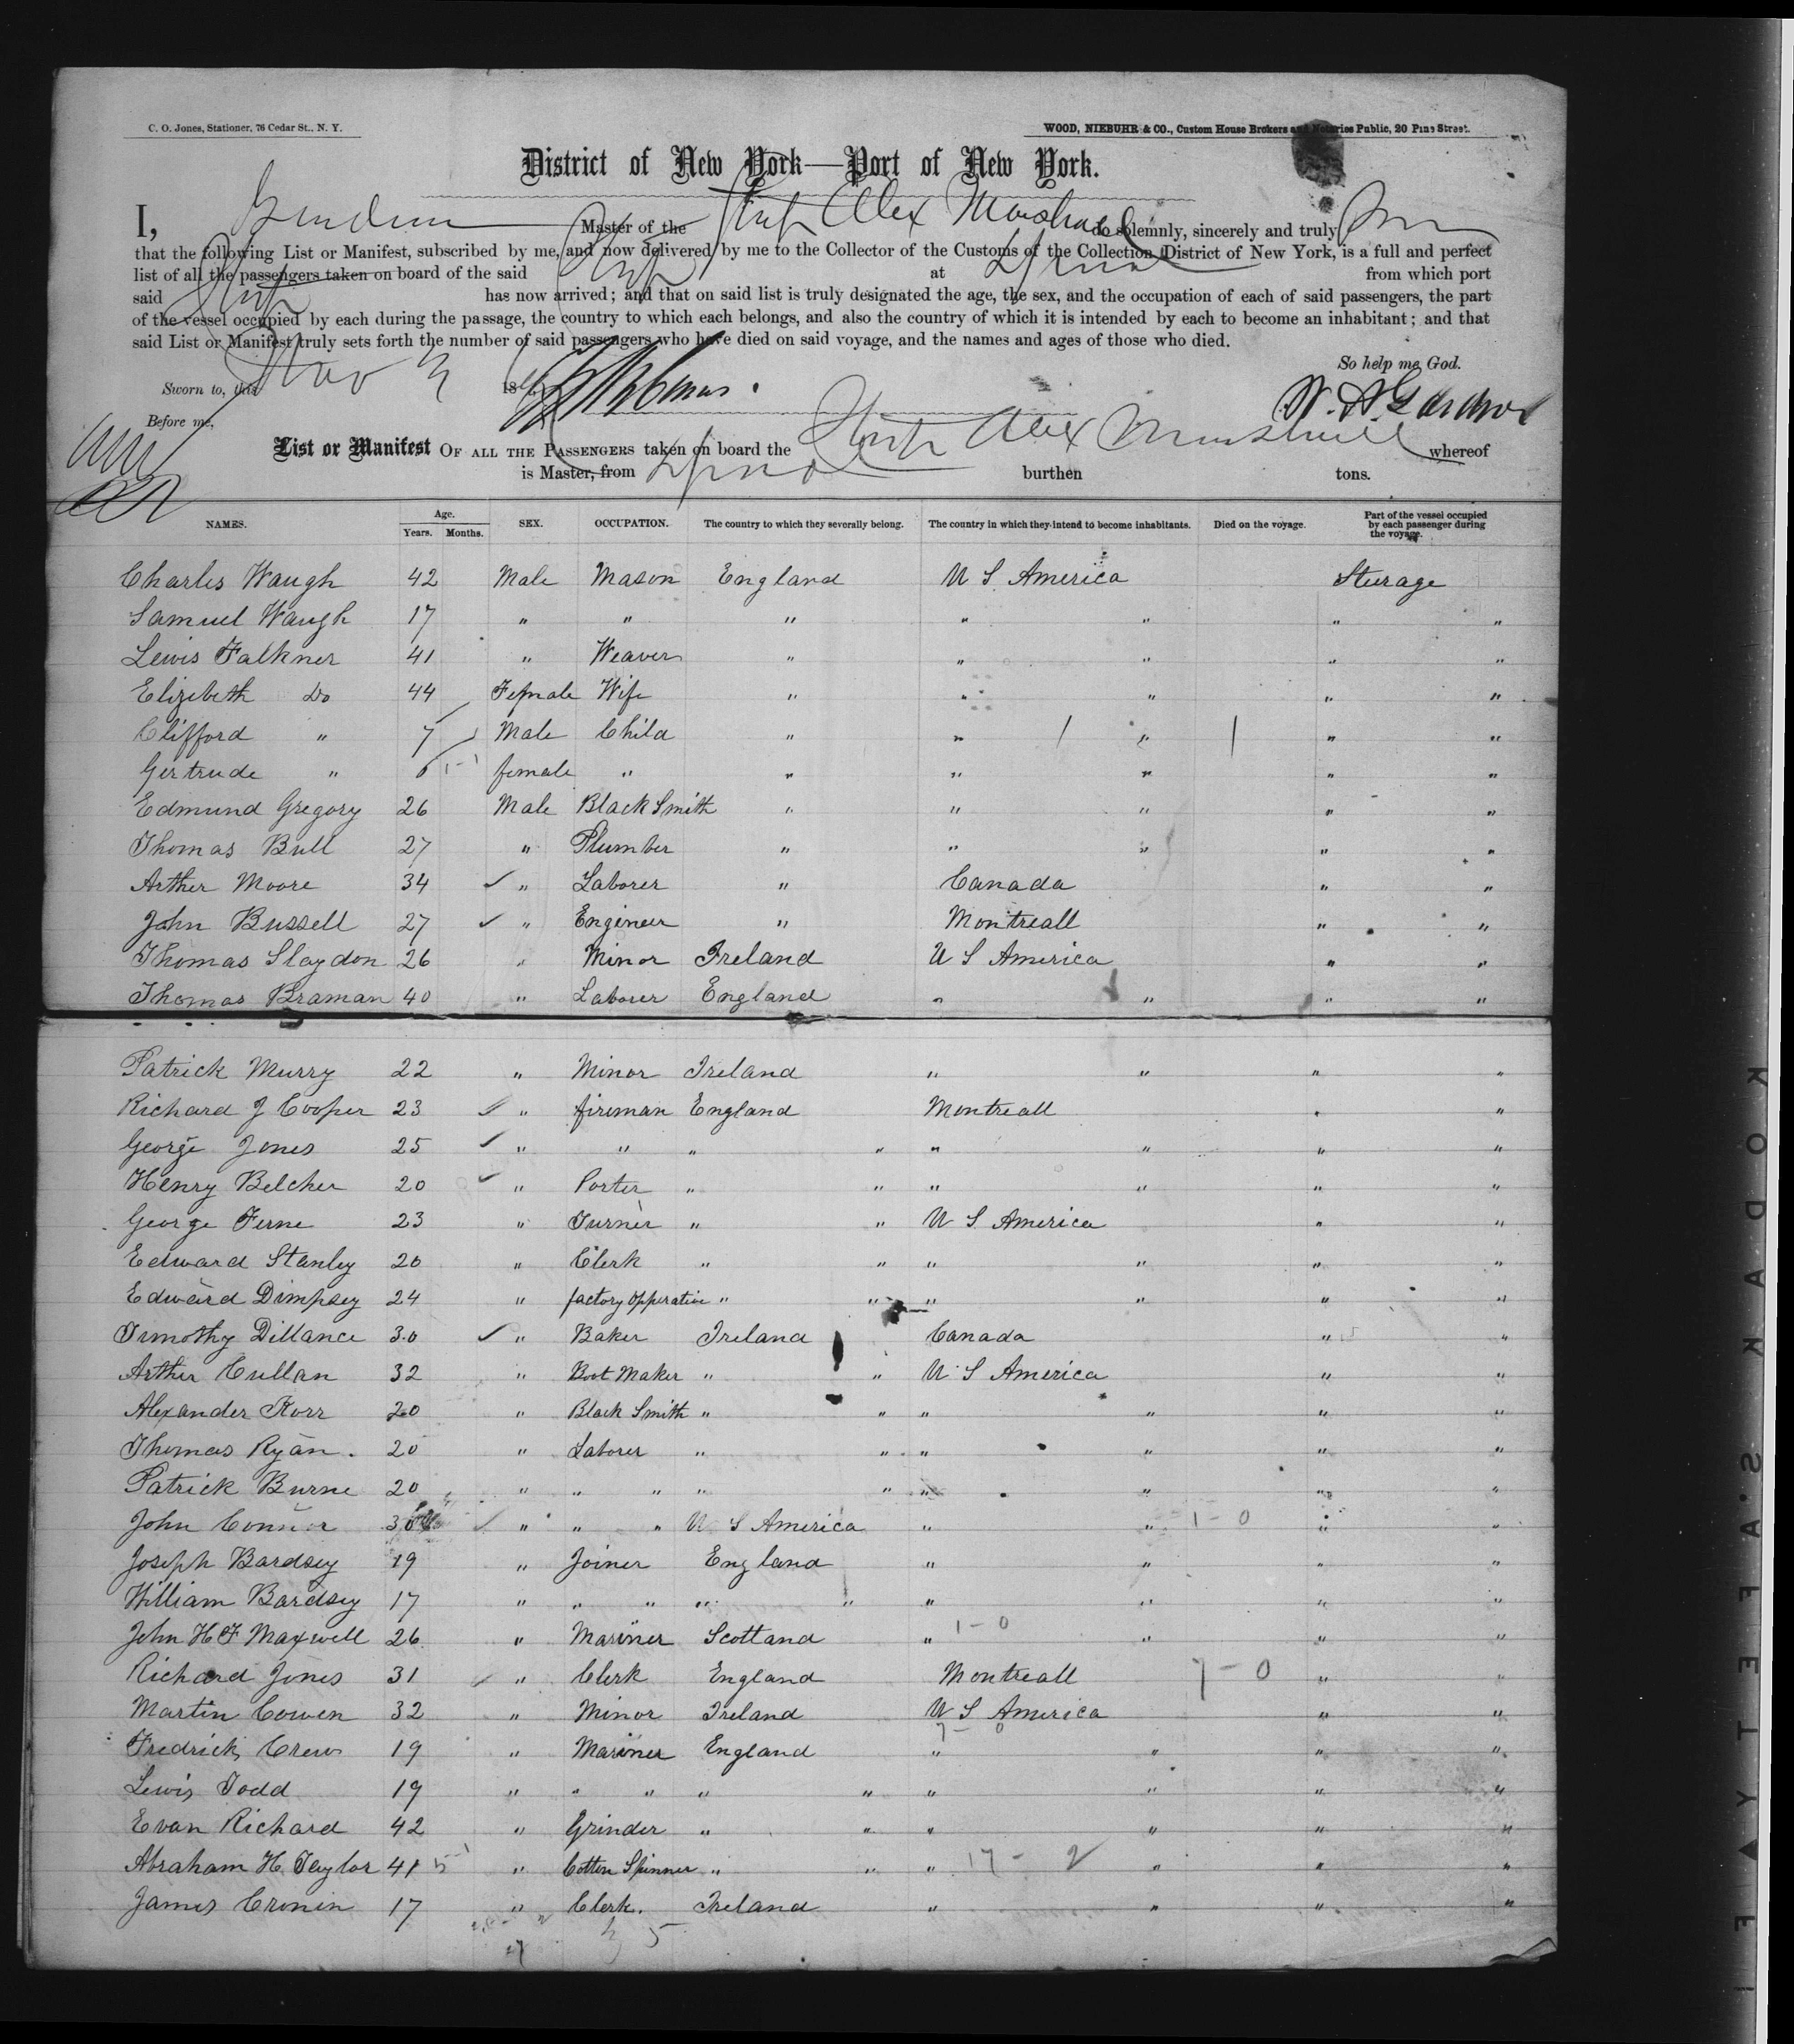 C. O. Jones, Stationer, 76 Cedar St., N. Y.
WOOD, NIEBUHR & CO., Custom House Brokers and Notaries Public, 20 Pine Street.
District of New York—Port of New York.
I, Master of the Ship Alex Marshall do solemnly, sincerely and truly
that the following List or Manifest, subscribed by me, and now delivered by me to the Collector of the Customs of the Collection District of New York, is a full and perfect
list of all the passengers taken on board of the said Ship at from which port
said Ship has now arrived; and that on said list is truly designated the age, the sex, and the occupation of each of said passengers, the part
of the vessel occupied by each during the passage, the country to which each belongs, and also the country of which it is intended by each to become an inhabitant; and that
said List or Manifest truly sets forth the number of said passengers who have died on said voyage, and the names and ages of those who died.
So help me God.
Sworn to, this Nov 18
Before me,
List or Manifest OF ALL THE PASSENGERS taken on board the Ship Alex Marshall whereof
is Master, from burthen tons.
NAMES. Age. Years. Months. SEX. OCCUPATION. The country to which they severally belong. The country in which they intend to become inhabitants. Died on the voyage. Part of the vessel occupied by each passenger during the voyage.
Charles Waugh 42 Male Mason England U S America Sturage
Samuel Waugh 17 " " " " " " "
Lewis Falkner 41 " Weaver " " " " "
Elizebeth Do 44 Female Wife " " " " "
Clifford " 7 Male Child " " " " "
Gertrude " 6 female " " " " " "
Edmund Gregory 26 Male Black Smith " " " " "
Thomas Bull 27 " Plumber " " " " "
Arther Moore 34 ✓ " Laborer " Canada " "
John Bussell 27 ✓ " Engineer " Montreall " "
Thomas Slaydon 26 " Minor Ireland U S America " "
Thomas Braman 40 " Laborer England " " " "
Patrick Murry 22 " Minor Ireland " " " "
Richard J Cooper 23 ✓ " fireman England Montreall " "
George Jones 25 ✓ " " " " " " " "
Henry Belcher 20 ✓ " Porter " " " " " "
George Ferne 23 " Turner " " U S America " "
Edward Stanley 20 " Clerk " " " " " "
Edward Dimpsey 24 " factory opperative " " " " " "
Timothy Dillance 30 ✓ " Baker Ireland Canada " "
Arther Cullan 32 " Boot Maker " " U S America " "
Alexander Korr 20 " Black Smith " " " " " "
Thomas Ryan. 20 " Laborer " " " " " "
Patrick Burne 20 " " " " " " " " "
John Connor 30 ✓ " " " U S America " " 1-0 " "
Joseph Bardsey 19 " Joiner England " " " "
William Bardsey 17 " " " " " " " " "
John H F Maxwell 26 " Mariner Scotland " 1-0 " " "
Richard Jones 31 ✓ " Clerk England Montreall 7-0 " "
Martin Cowen 32 " Minor Ireland U S America " "
Fredrick Crew 19 " Mariner England " " " "
Lewis Todd 19 " " " " " " " " "
Evan Richard 42 " Grinder " " " " " "
Abraham H. Taylor 41 " Cotton Spinner " " " 17-2 " " "
James Cronin 17 " Clerk. Ireland " " " "
KODAK SAFETY